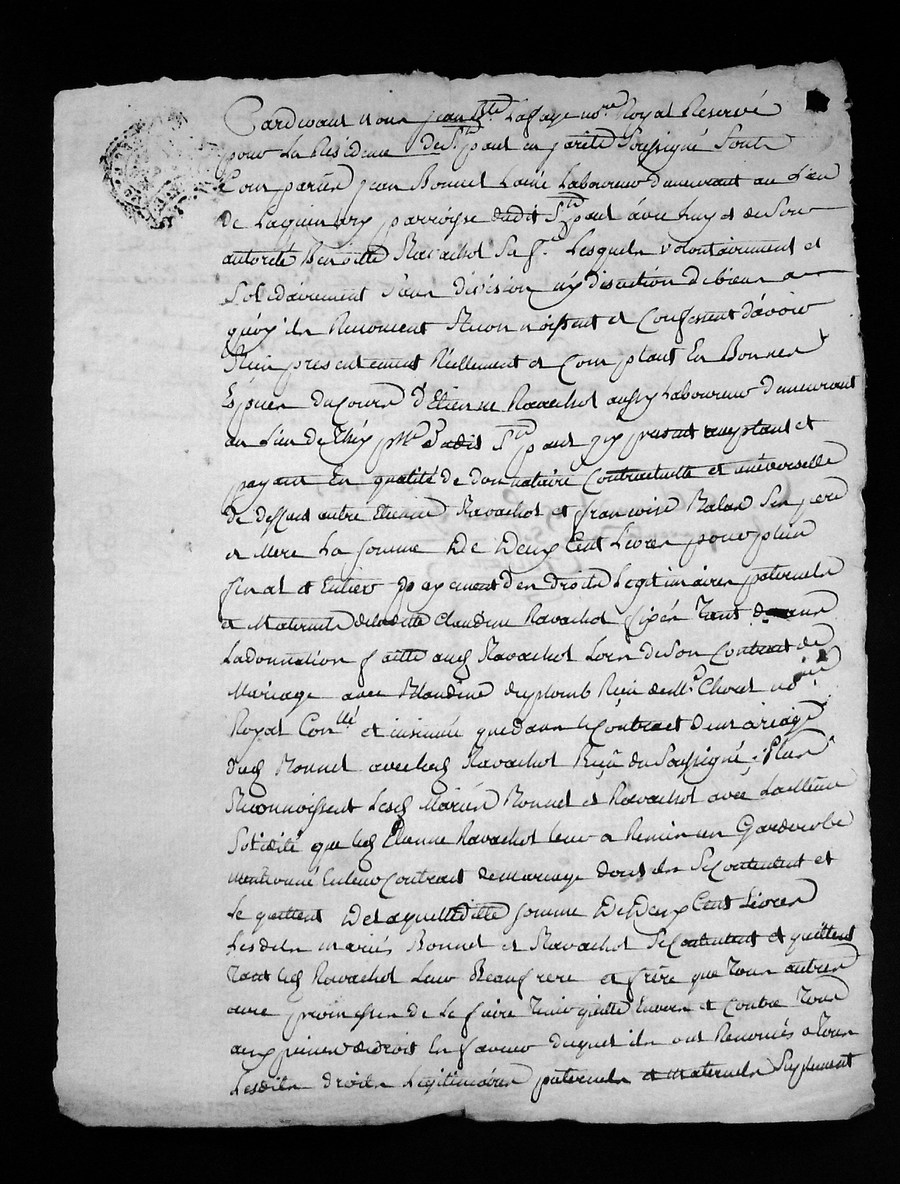 Pardevant Nous jean Bte Lafaye nore Royal Reservé
pour La Residence de St paul en jarêts Soussigné Sont
Comparûs jean Bonnet Lainé Laboureur demeurant au Lieu
De parroisse dudit St paul avec luy et de Son
autorité Benoitte Ravachol Sa fe. Lesquels volontairement et
Solidairement Sans division ny discution de biens a
quoy ils Renoncent Reconnoissent et Confessent d'avoir
Reçu presentement Réellement et Comptant En Bonnes
Espèces du Cours d'Etienne Ravachol aussy Laboureur demeurant
au Lieu de psse dudit St paul icy present acceptant et
payant En qualité de donnataire Contractuelle et universelle
de deffunt autre Etienne Ravachol et françoise Balas Ses pere
et Mere La Somme De Deux Cent Livres pour plein
final et Entier payement des droits Legitimaires paternels
et Maternels de ladite Claudine Ravachol fixés Tant dans
La donnation faitte aud Ravachol Lors de Son Contract de
Mariage avec Blandine Duplomb Reçu de Me. Chorel nore
Royal et insinuée que dans le Contract de mariage
dud Bonnet avec lad Ravachol Reçu du Soussigné ; Plus
Reconnoissent Lesd Mariés Bonnet et Ravachol avec La Même
Solidité que led Etienne Ravachol leur a Remis un Garderobe
mentionné En leur Contract de mariage dont ils Se Contentent et
Le quittent De laquelle ditte Somme De Deux Cent Livres
Lesdits mariés Bonnet et Ravachol Se Contentent et quittent
Tant led Ravachol Leur Beaufrere et frère que Tous autres
avec promesses de Le faire Tenir quitte Envers et Contre Tous
aux peines de droit En faveur duquel ils ont Renoncés a Tous
Lesdits droits Legitimaires paternels et maternels Suplement